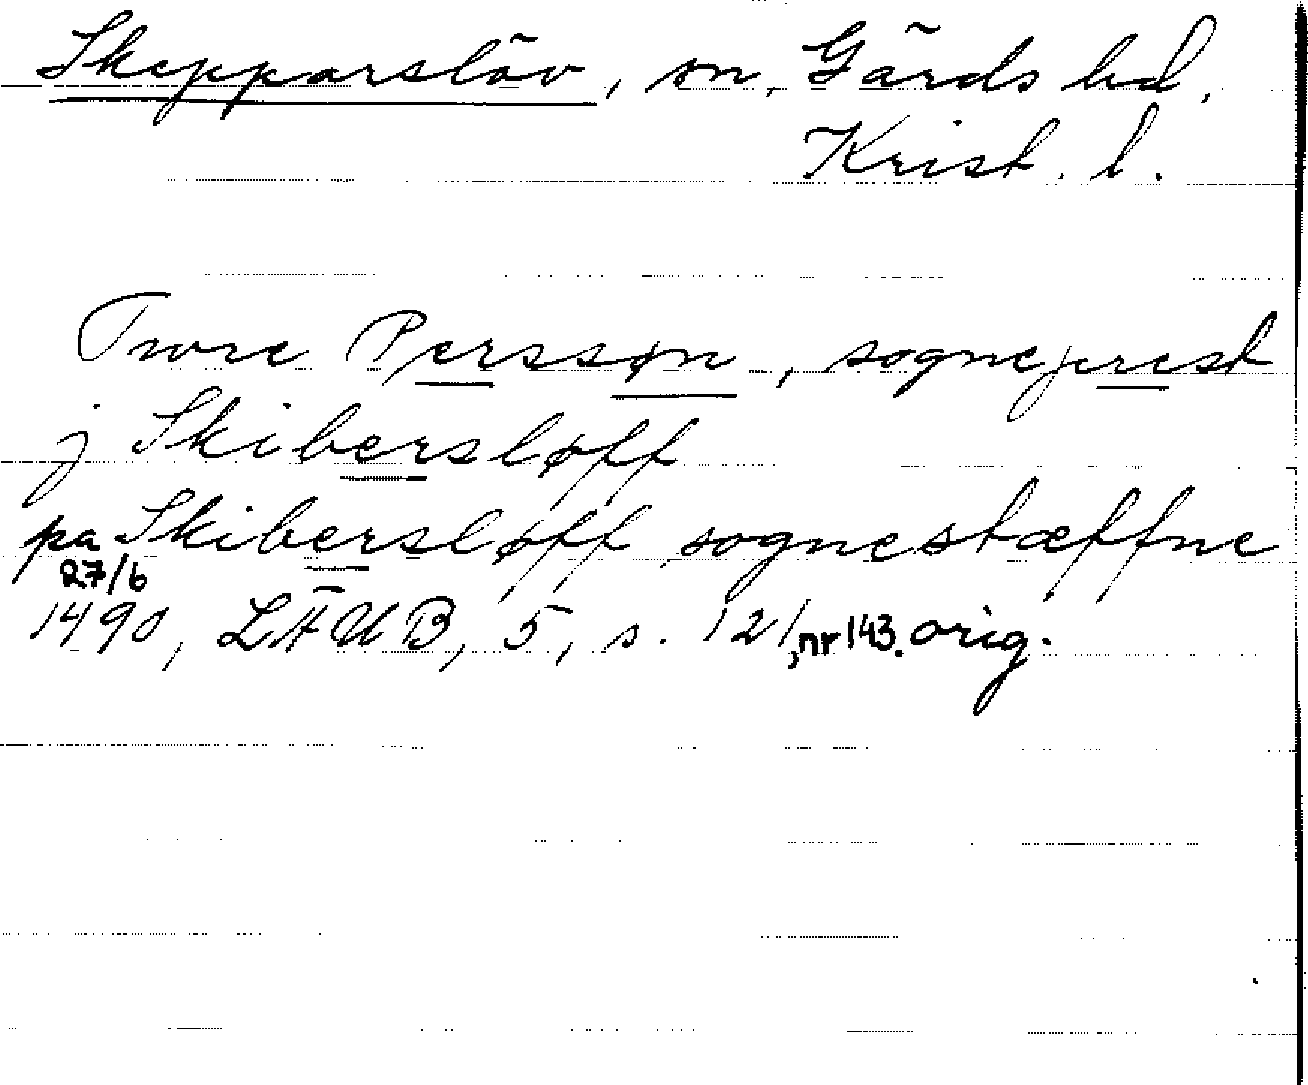 Skepparslöv, sn, Gärds hd,
Krist. l.
Twre Perssøn, sogneprest
j Skibersløff
pa Skibersløff sognestæffne
27/6
1490, LÄUB, 5, s. 121, nr 143. orig.